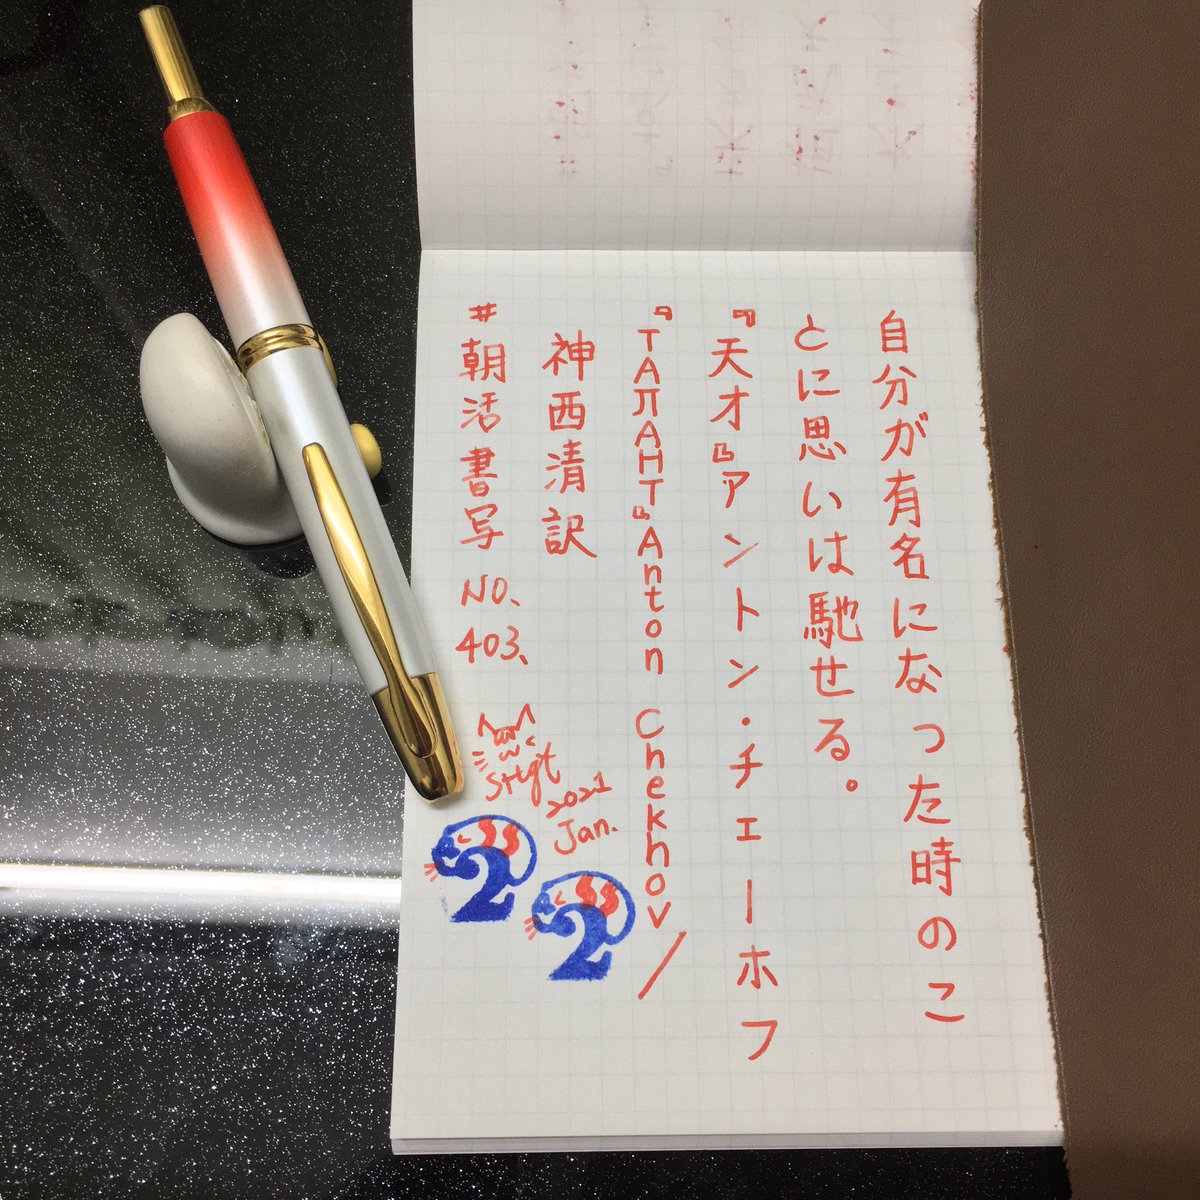 自分が有名になった時のこ
とに思いは馳せる。
『天才』アントン・チェーホフ
『ТАЛАНТ』Anton Chekhov/
神西清訳
#朝活書写 No.
403.
Stgt
2021
Jan.
2
2